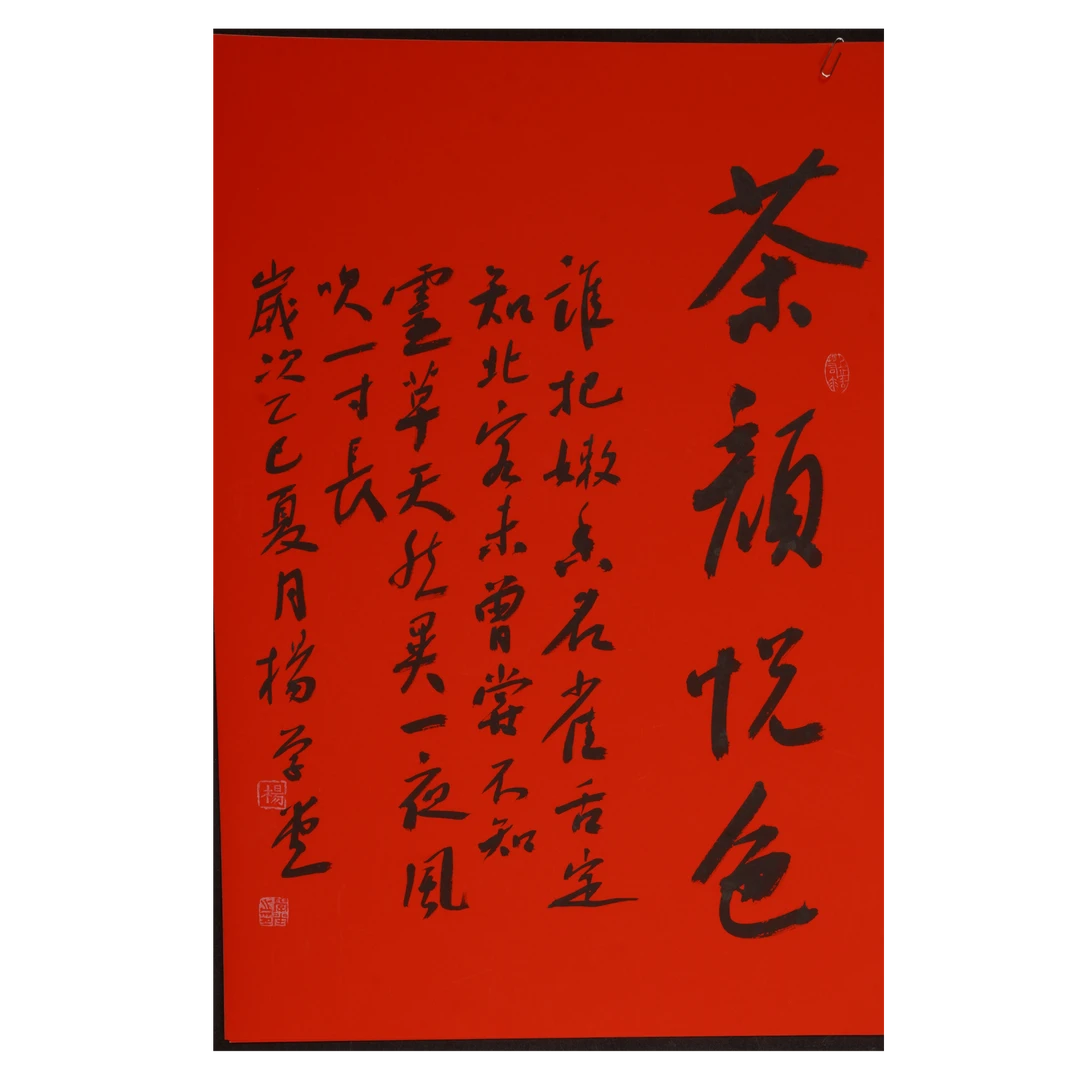 茶颜悦色
谁把嫩香名雀舌定
知北客未曾尝不知
靈草天然異一夜風
吹一寸長
歲次乙巳夏月楊学
楊